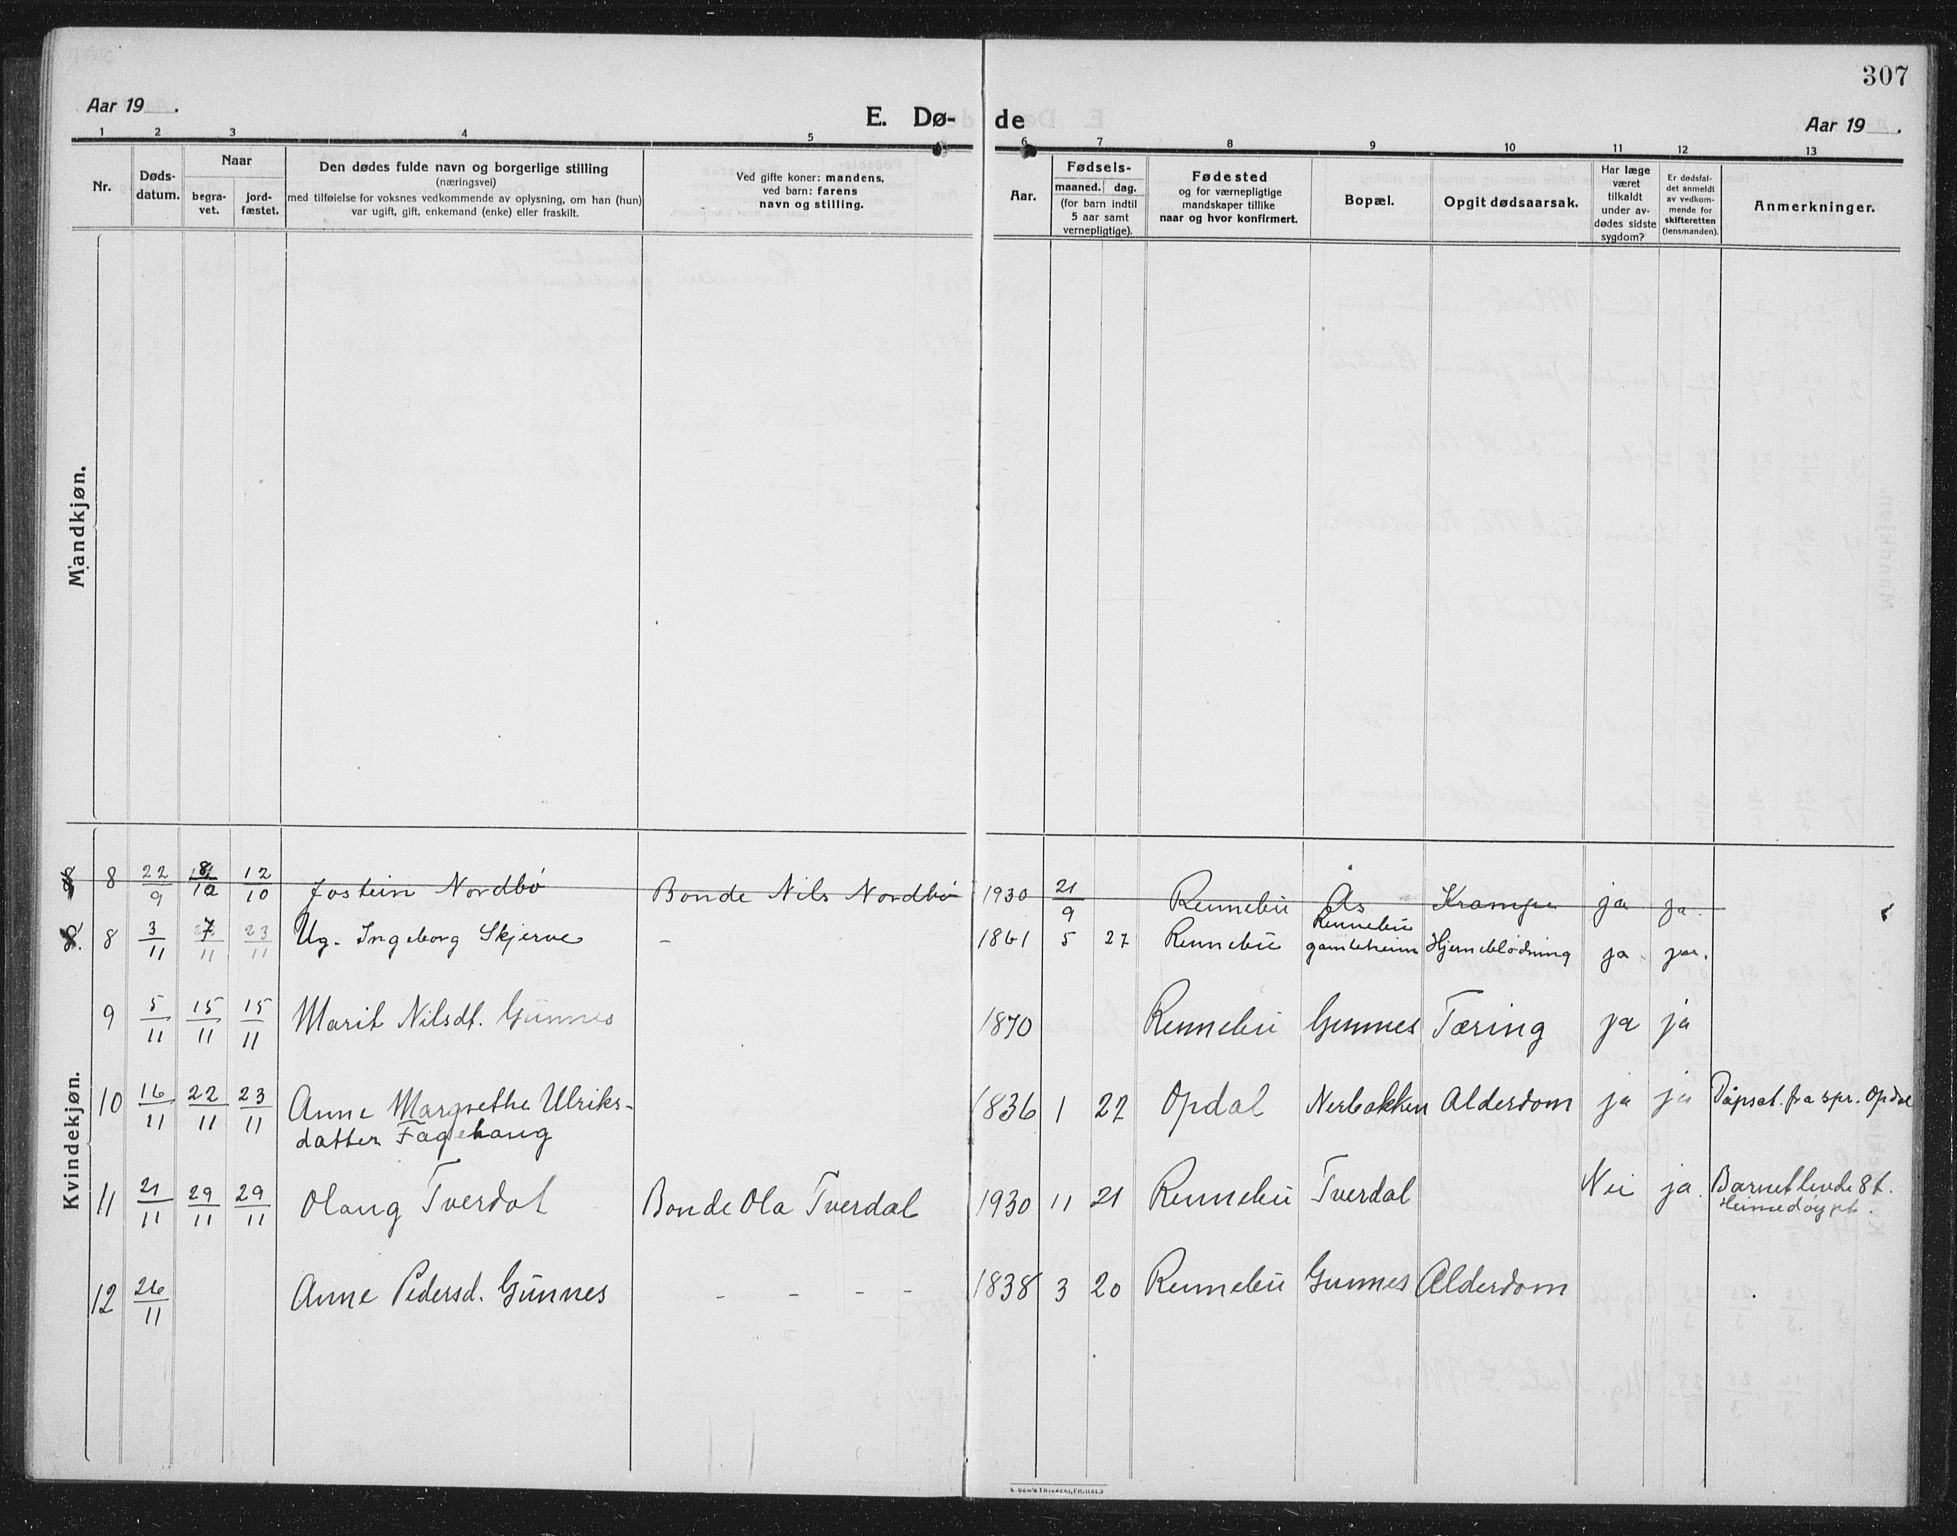 307
Aar 19 .
E. Dø-
de
Aar 19 .
1 2 3 4 5 6 7 8 9 10 11 12 13
Nr.
Døds-
datum.
Naar
begra-
vet.
jord-
fæstet.
Den dødes fulde navn og borgerlige stilling
(næringsvei)
med tilføielse for voksnes vedkommende av oplysning, om han (hun)
var ugift, gift, enkemand (enke) eller fraskilt.
Ved gifte koner: mandens,
ved barn: farens
navn og stilling.
Aar.
Fødsels-
maaned. dag.
(for barn indtil
5 aar samt
vernepligtige).
Fødested
og for værnepligtige
mandskaper tillike
naar og hvor konfirmert.
Bopæl.
Opgit dødsaarsak.
Har læge
været
tilkaldt
under av-
dødes sidste
sygdom?
Er dødsfal-
det anmeldt
av vedkom-
mende for
skifteretten
(lensmanden).
Anmerkninger.
Mandkjøn.
Kvindekjøn.
8 22/9 8/10 12/10 Jostein Nordbø Bonde Nils Nordbø 1930 21/9 Rennebu Ås Krampe ja ja.
8 3/11 7/11 23/11 Ug. Ingeborg Skjerve - 1861 5 27 Rennebu Rennebu
gamleheim Hjerneblødning ja ja.
9 5/11 15/11 15/11 Marit Nilsdt. Gunnes 1870 Rennebu Gunnes Tæring ja ja
10 16/11 22/11 23/11 Anne Margrethe Ulriks-
datter Fagerhaug 1836 1 27 Opdal Nerbakken Alderdom ja ja Dåpsat. fra spr. Opdal
11 21/11 29/11 29/11 Olaug Tverdal Bonde Ola Tverdal 1930 11 21 Rennebu Tverdal Nei ja. Barnet levde 8 t.
Heimedøypt.
12 26/11 Anne Pedersd. Gunnes - - - - 1838 3 20 Rennebu Gunnes Alderdom